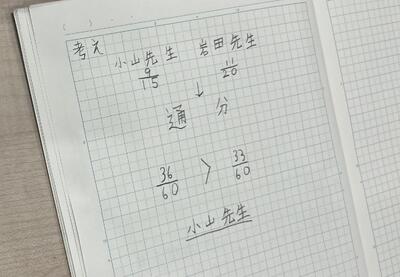 ( )
考え
小山先生 岩田先生
9/15 11/20
↓
通分
36/60 > 33/60
小山先生